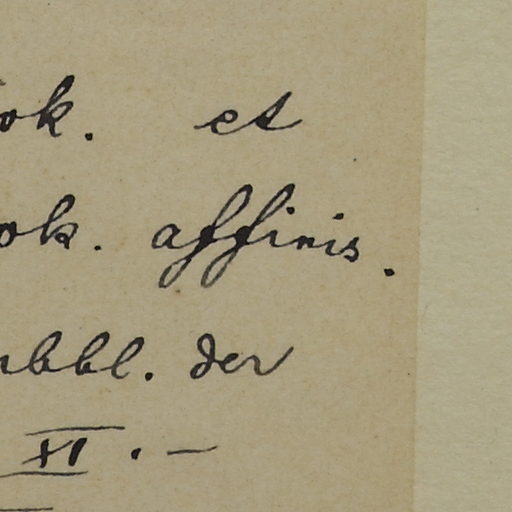 ok. et
ok. affinis.
bbl. der
XI. –